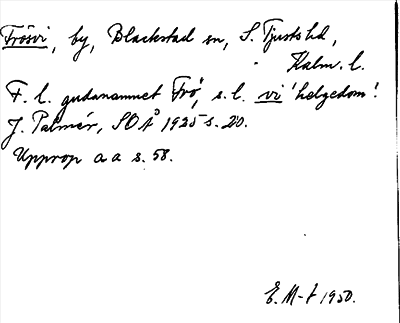 Frösvi, by, Blackstad sn, S. Tjusts hd,
Kalm. l.
F. l. gudanamnet Frö, s. l. vi 'helgedom'.
J. Palmér, SOÅ 1925 s. 20.
Upprop a a s. 58.
E. M-t 1930.